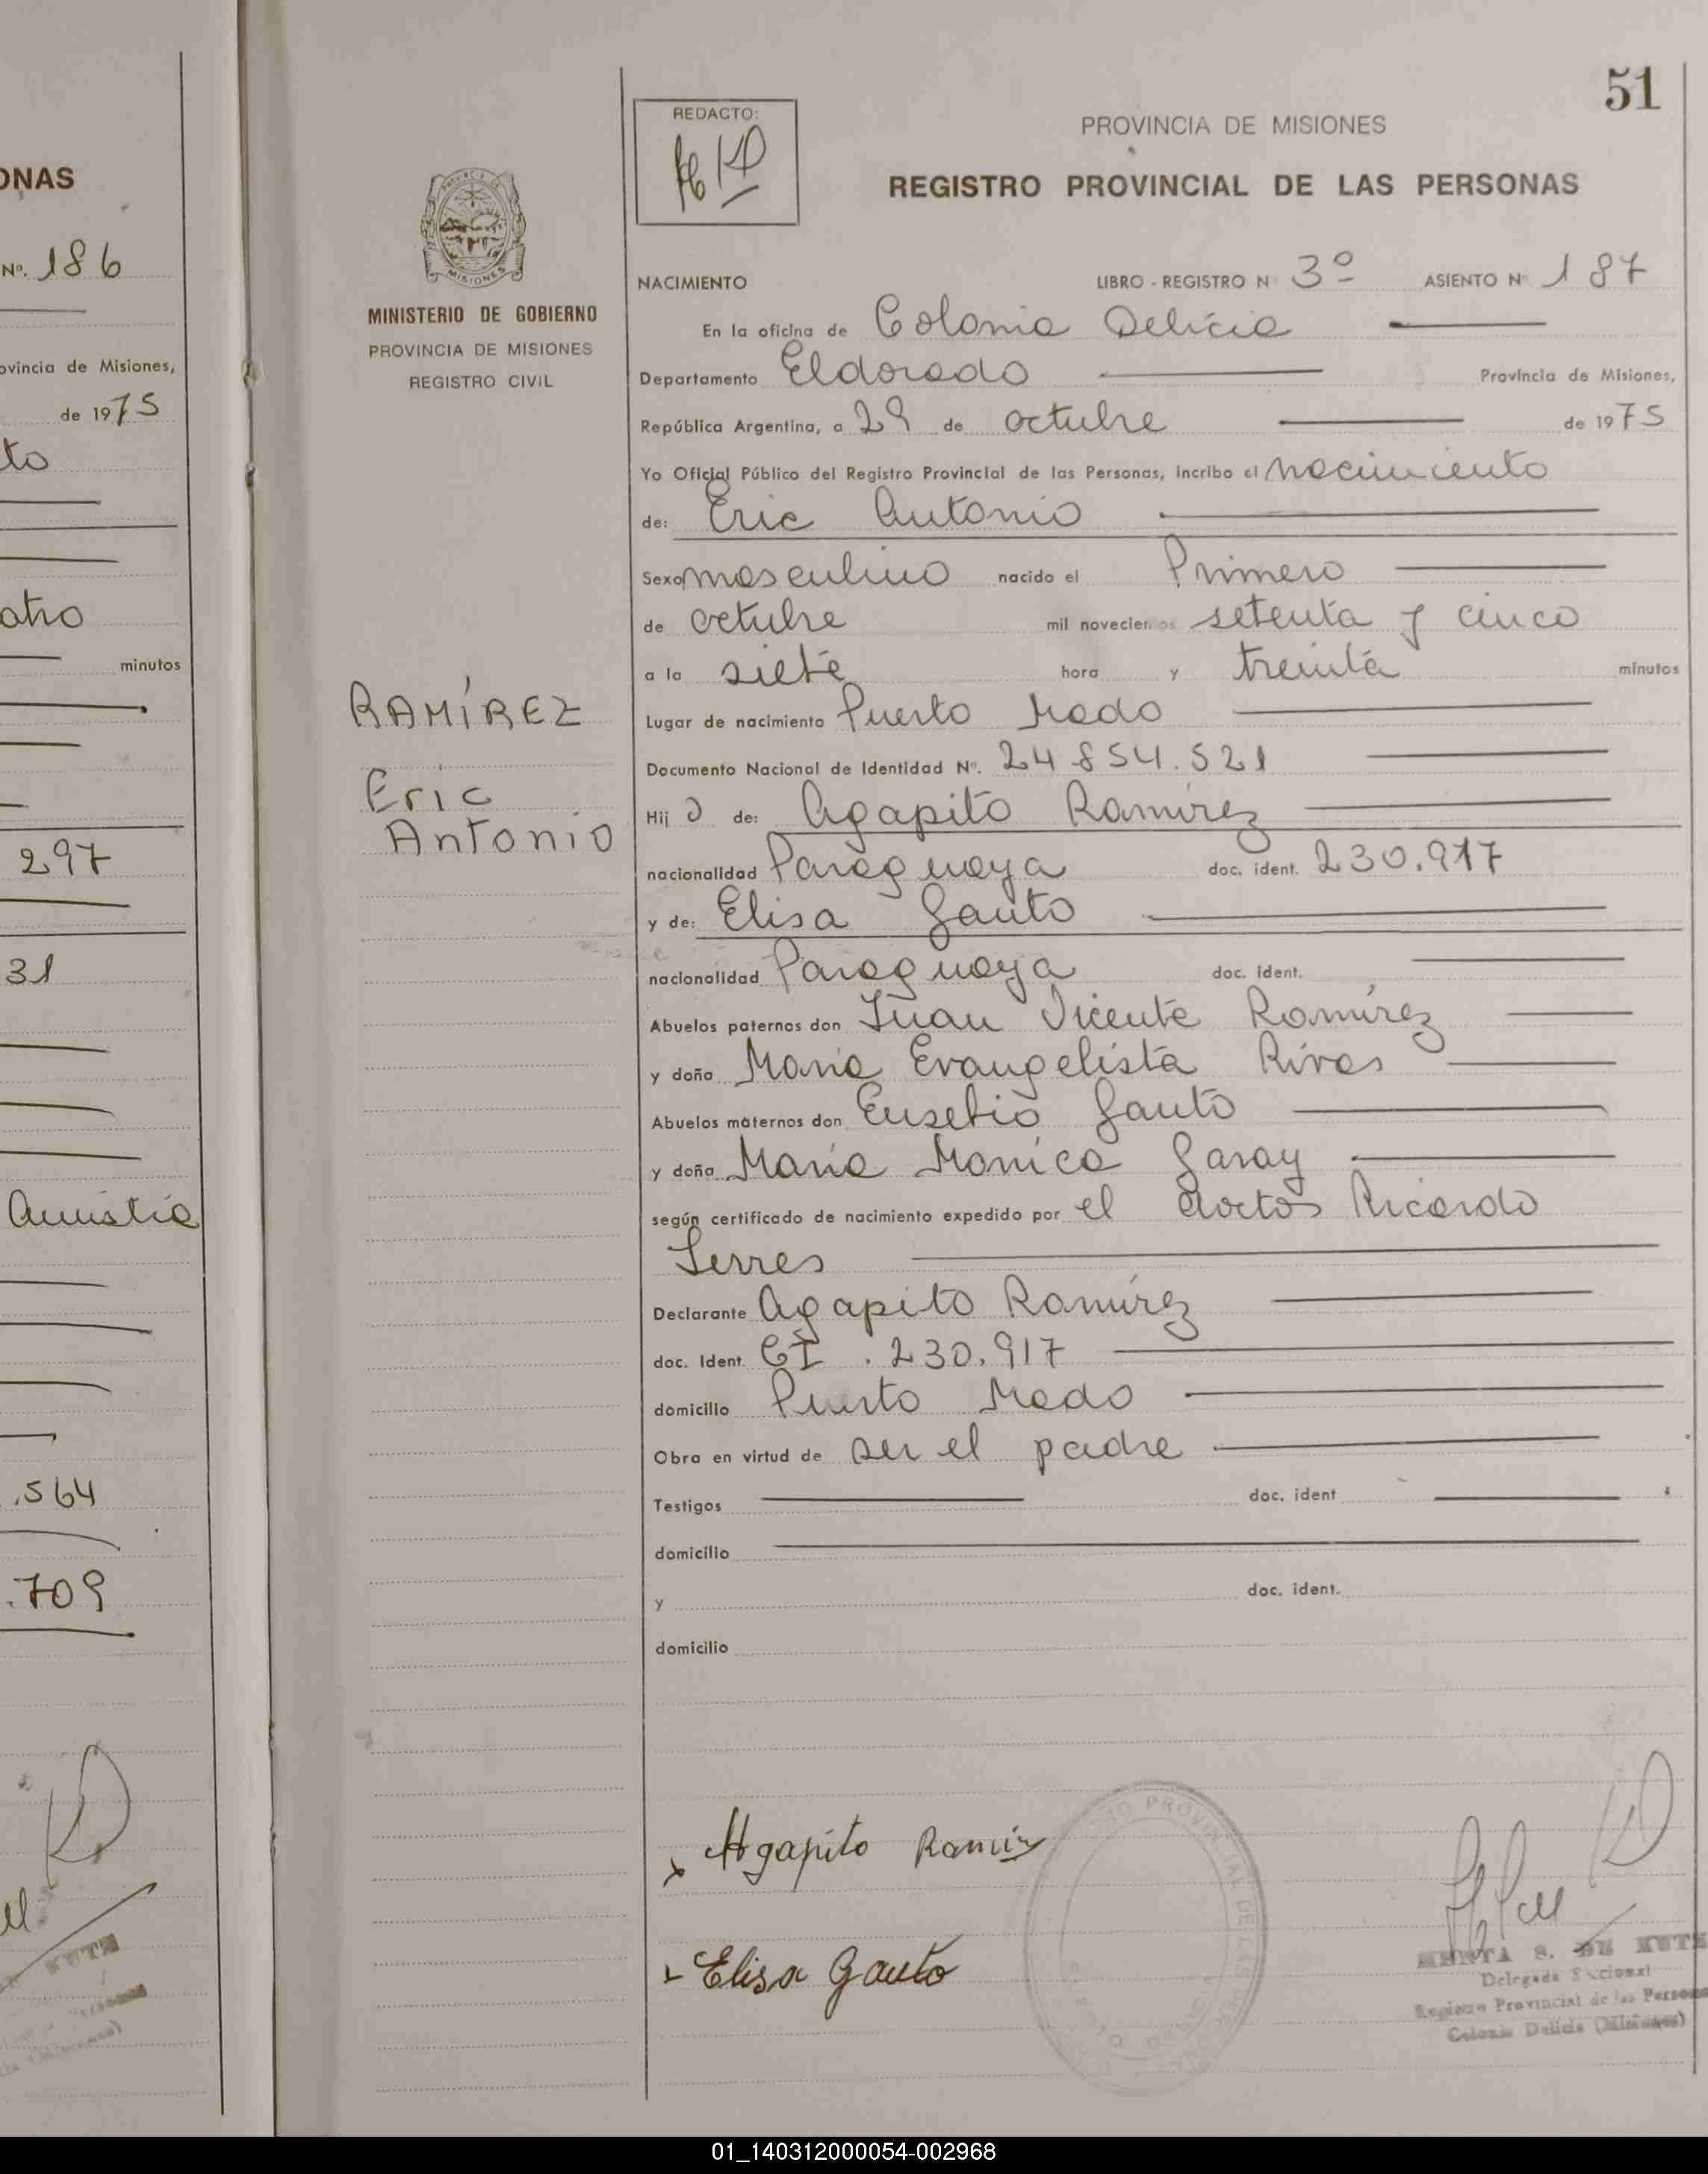 ONAS
Nº. 186
ovincia de Misiones,
de 1975
to
atro
minutos
297
31
Amistia
.564
.709
51
REDACTO:
PROVINCIA DE MISIONES
REGISTRO PROVINCIAL DE LAS PERSONAS
MISIONES
MINISTERIO DE GOBIERNO
PROVINCIA DE MISIONES
REGISTRO CIVIL
RAMÍREZ
Eric
Antonio
NACIMIENTO LIBRO - REGISTRO N 3º ASIENTO Nº 187
En la oficina de Colonia Delicia
Departamento Eldorado Provincia de Misiones,
República Argentina, a 29 de octubre de 1975
Yo Oficial Público del Registro Provincial de las Personas, incribo el nacimiento
de: Eric Antonio
Sexo masculino nacido el Primero
de octubre mil novecientos setenta y cinco
a la siete hora y treinta minutos
Lugar de nacimiento Puerto Mado
Documento Nacional de Identidad Nº. 24.854.521
Hij o de: Agapito Ramírez
nacionalidad Paraguaya doc. ident. 230.917
y de: Elisa Gauto
nacionalidad Paraguaya doc. ident.
Abuelos paternos don Juan Vicente Ramírez
y doña Maria Evangelista Rivas
Abuelos maternos don Eusebio Gauto
y doña Maria Monica Garay
según certificado de nacimiento expedido por el doctor Ricardo
Serres
Declarante Agapito Ramírez
doc. Ident. CI .230.917
domicilio Puerto Mado
Obra en virtud de ser el padre
Testigos doc. ident
domicilio
y doc. ident.
domicilio
Agapito Ramirz
Elisa Gauto
S. DE KUTZ
Delegada Seccional
Registro Provincial de las Personas
Colonia Delicia (Misiones)
01_140312000054-002968